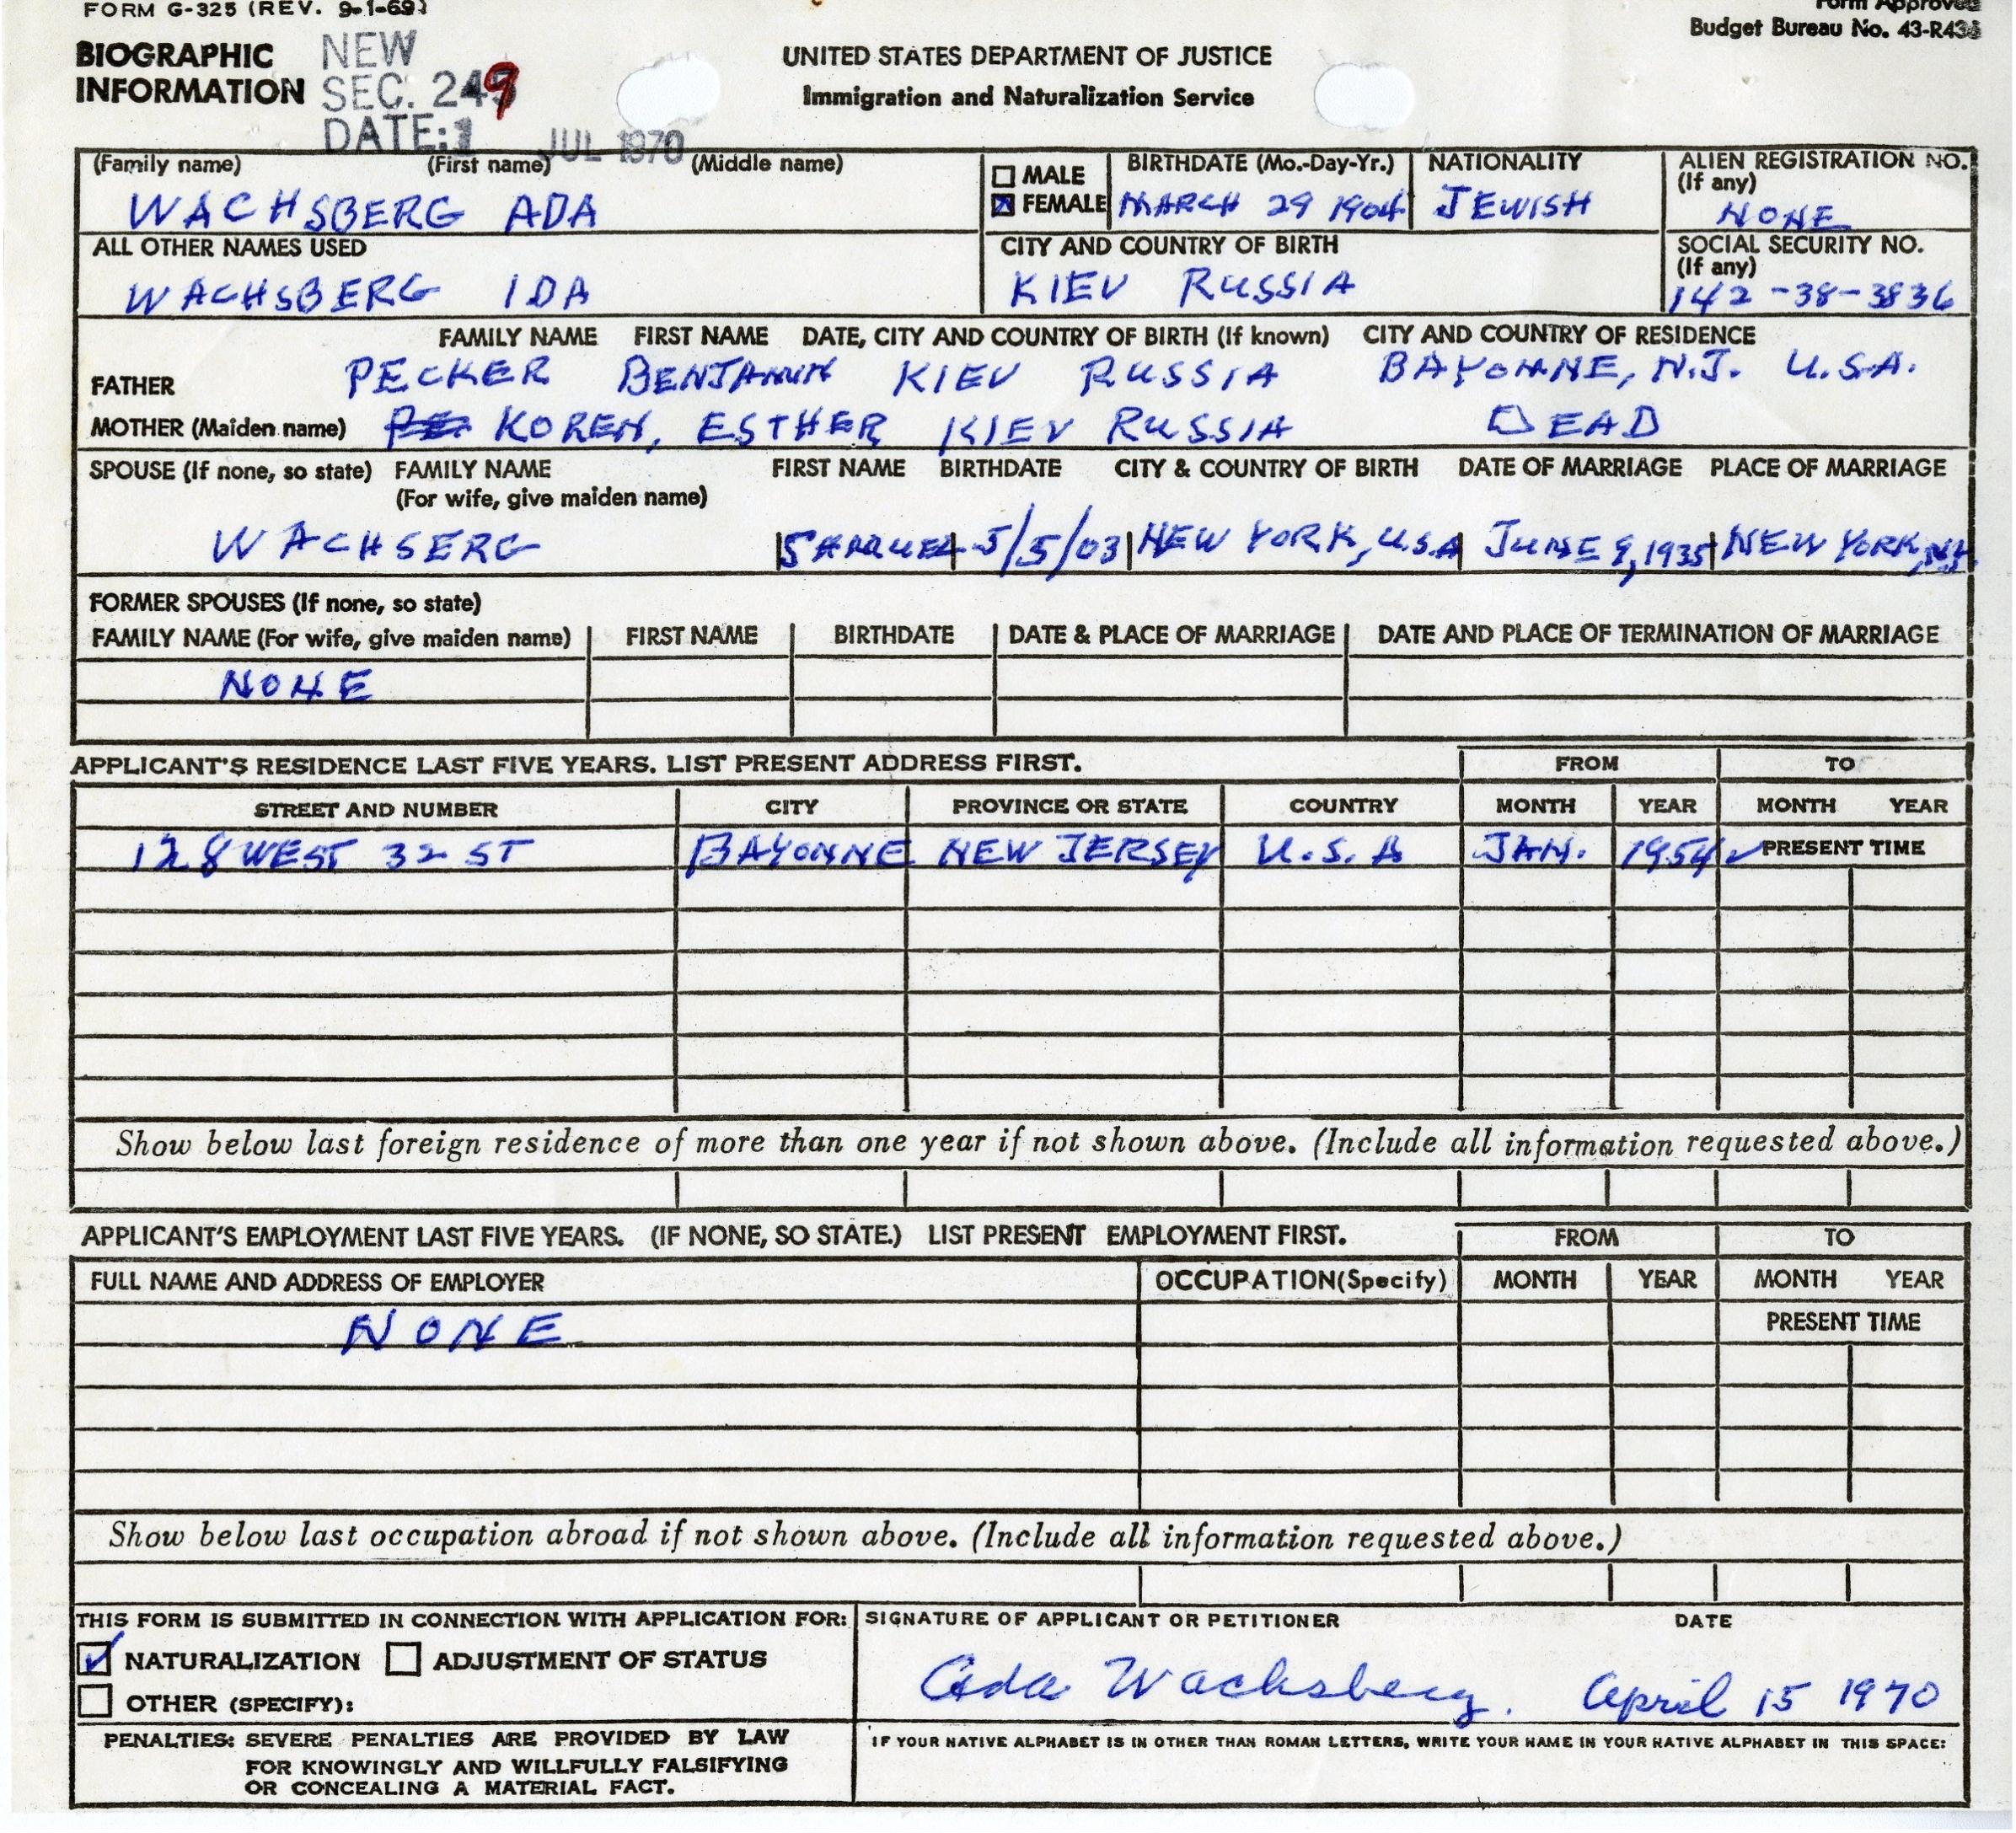 FORM G-325 (REV. 9-1-69)
Form Approved
Budget Bureau No. 43-R436
BIOGRAPHIC INFORMATION
NEW
SEC. 249
DATE: 1 JUL 1970
UNITED STATES DEPARTMENT OF JUSTICE
Immigration and Naturalization Service
(Family name) (First name) (Middle name)
WACHSBERG ADA
MALE
FEMALE
BIRTHDATE (Mo.-Day-Yr.)
MARCH 29 1904
NATIONALITY
JEWISH
ALIEN REGISTRATION NO.
(If any)
NONE
ALL OTHER NAMES USED
WACHSBERG IDA
CITY AND COUNTRY OF BIRTH
KIEV RUSSIA
SOCIAL SECURITY NO.
(If any)
142-38-3836
FAMILY NAME FIRST NAME DATE, CITY AND COUNTRY OF BIRTH (If known) CITY AND COUNTRY OF RESIDENCE
FATHER PECKER BENJAMIN KIEV RUSSIA BAYONNE, N.J. U.S.A.
MOTHER (Maiden name) KOREN, ESTHER KIEV RUSSIA DEAD
SPOUSE (If none, so state) FAMILY NAME FIRST NAME BIRTHDATE CITY & COUNTRY OF BIRTH DATE OF MARRIAGE PLACE OF MARRIAGE
(For wife, give maiden name)
WACHSERG SAMUEL 5/5/03 NEW YORK, U.S.A JUNE 9, 1935 NEW YORK, N.Y.
FORMER SPOUSES (If none, so state)
FAMILY NAME (For wife, give maiden name) FIRST NAME BIRTHDATE DATE & PLACE OF MARRIAGE DATE AND PLACE OF TERMINATION OF MARRIAGE
NONE
APPLICANT'S RESIDENCE LAST FIVE YEARS. LIST PRESENT ADDRESS FIRST. FROM TO
STREET AND NUMBER CITY PROVINCE OR STATE COUNTRY MONTH YEAR MONTH YEAR
128 WEST 32 ST BAYONNE NEW JERSEY U.S.A JAN. 1954 PRESENT TIME
Show below last foreign residence of more than one year if not shown above. (Include all information requested above.)
APPLICANT'S EMPLOYMENT LAST FIVE YEARS. (IF NONE, SO STATE.) LIST PRESENT EMPLOYMENT FIRST. FROM TO
FULL NAME AND ADDRESS OF EMPLOYER OCCUPATION(Specify) MONTH YEAR MONTH YEAR
NONE PRESENT TIME
Show below last occupation abroad if not shown above. (Include all information requested above.)
THIS FORM IS SUBMITTED IN CONNECTION WITH APPLICATION FOR:
NATURALIZATION ADJUSTMENT OF STATUS
OTHER (SPECIFY):
SIGNATURE OF APPLICANT OR PETITIONER DATE
Ada Wachsberg. April 15 1970
PENALTIES: SEVERE PENALTIES ARE PROVIDED BY LAW
FOR KNOWINGLY AND WILLFULLY FALSIFYING
OR CONCEALING A MATERIAL FACT.
IF YOUR NATIVE ALPHABET IS IN OTHER THAN ROMAN LETTERS, WRITE YOUR NAME IN YOUR NATIVE ALPHABET IN THIS SPACE: